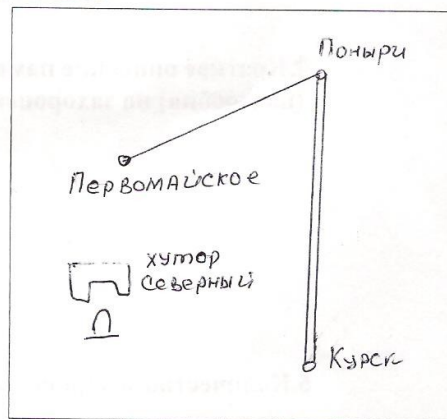 Поныри
Первомайское
хутор
Северный
Курск